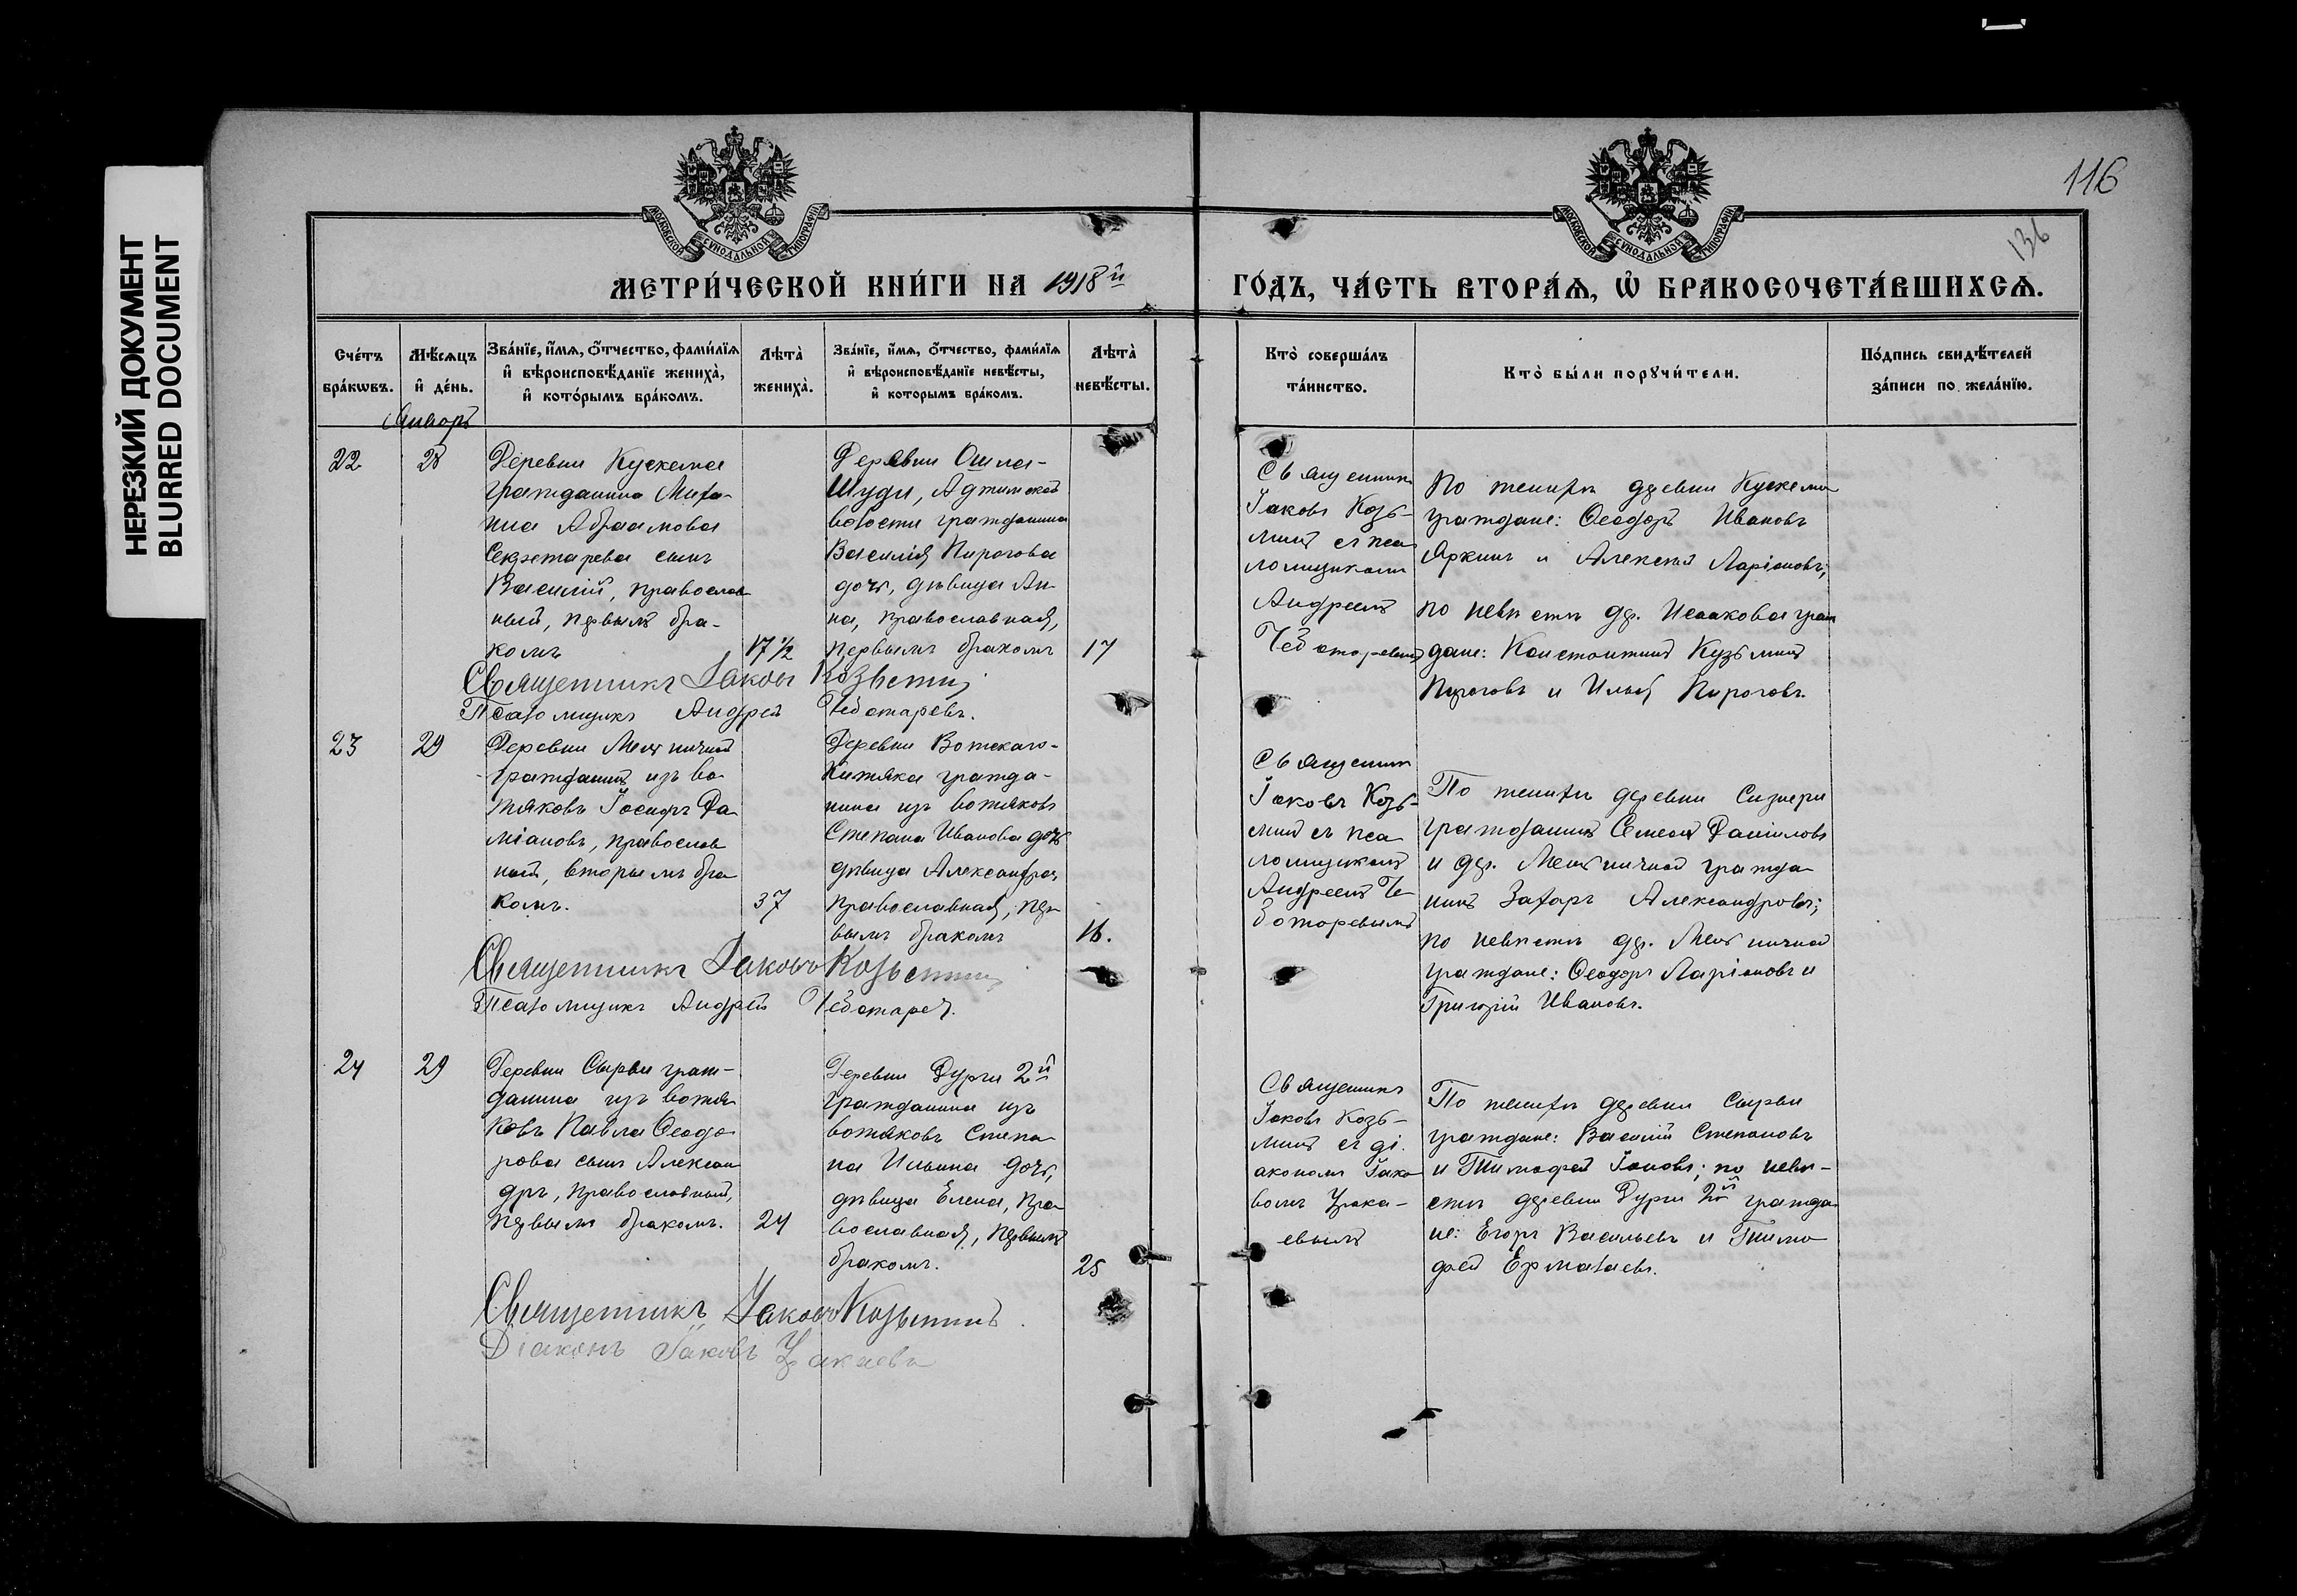 НЕРЕЗКИЙ ДОКУМЕНТ
BLURRED DOCUMENT
116
136
МОСКОВСКОЙ СѴНОДАЛЬНОЙ ТИПОГРАФІИ
МОСКОВСКОЙ СѴНОДАЛЬНОЙ ТИПОГРАФІИ
МЕТРИ́ЧЕСКОЙ КНИ́ГИ НА 1918й
ГО́ДЪ, ЧА́СТЬ ВТОРА́Ѧ, Ѽ БРАКОСОЧЕТА́ВШИХСѦ.
Сче́тъ
бра́кѡвъ.
Мѣ́сѧцъ
и҆ де́нь.
Зва́нїе, и҆́мѧ, ѻ҆́тчество, фами́лїѧ
и҆ вѣроисповѣ́данїе жениха̀,
и҆ кото́рымъ бра́комъ.
Лѣта̀
жениха̀.
Зва́нїе, и҆́мѧ, ѻ҆́тчество, фами́лїѧ
и҆ вѣроисповѣ́данїе невѣ́сты,
и҆ которымъ бра́комъ.
Лѣта̀
невѣ́сты.
Кто̀ соверша́лъ
та́инство.
Кто̀ бы́ли порꙋчи́тели.
По́дпись свидѣ́телей
за́писи по жела́нїю.
Январь
22
28
Деревни Кускема
гражданина Миха-
ила Абрамова
Секретарева сынъ
Василий, православ
ный, первымъ бра-
комъ
17 ½
Деревни Ошла-
Шуди, Аджимской
волости гражданина
Василія Пирогова
дочь, дѣвица Ан-
на, православная,
первымъ бракомъ
17
Священник
Іаковъ Козь-
минъ съ пса
ломщикомъ
Андреемъ
Чеботаревымъ
По женихѣ деревни Кускема
граждане: Ѳеодоръ Ивановъ
Яркинъ и Алексѣй Ларіоновъ;
по невѣстѣ дер. Исаакова граж
дане: Константинъ Кузьминъ
Пироговъ и Илья Пироговъ.
Священникъ Іаковъ Козьминъ
Псаломщикъ Андрей Чеботаревъ.
23
29
Деревни Мельничной
гражданинъ изъ во-
тяковъ Іосифъ Да
міановъ, православ
ный, вторымъ бра
комъ.
37
Деревни Вотскаго-
Китяка гражда-
нина изъ вотяковъ
Степана Иванова дочь
дѣвица Александра,
православная, пер
вымъ бракомъ
16.
Священник
Іаковъ Козь-
минъ съ пса
ломщикомъ
Андреемъ Че
ботаревымъ
По женихѣ деревни Сизнери
гражданинъ Семеонъ Даниловъ
и дер. Мельничной гражда
нинъ Захаръ Александровъ;
по невѣстѣ дер. Мельничной
граждане: Ѳеодоръ Ларіоновъ и
Григорій Ивановъ.
Священникъ Іаковъ Козьминъ
Псаломщикъ Андрей Чеботаревъ.
24
29
Деревни Сырьи граж-
данина изъ вотя
ковъ Павла Ѳеодо
рова сынъ Алексан
дръ, православный,
первымъ бракомъ.
24
Деревни Дурги 2й
гражданина изъ
вотяковъ Степа
на Ильина дочь,
дѣвица Елена, пра
вославная, первымъ
бракомъ.
25
Священникъ
Іаковъ Козь-
минъ съ ді-
акономъ Іако
вомъ Урака-
евымъ
По женихѣ деревни Сырьи
граждане: Василій Степановъ
и Тимофей Іоновъ; по невѣ-
стѣ деревни Дурги 2й гражда
не: Егоръ Васильевъ и Тимо
фей Ермалаевъ.
Священникъ Іаковъ Козьминъ.
Діаконъ Іаковъ Уракаевъ